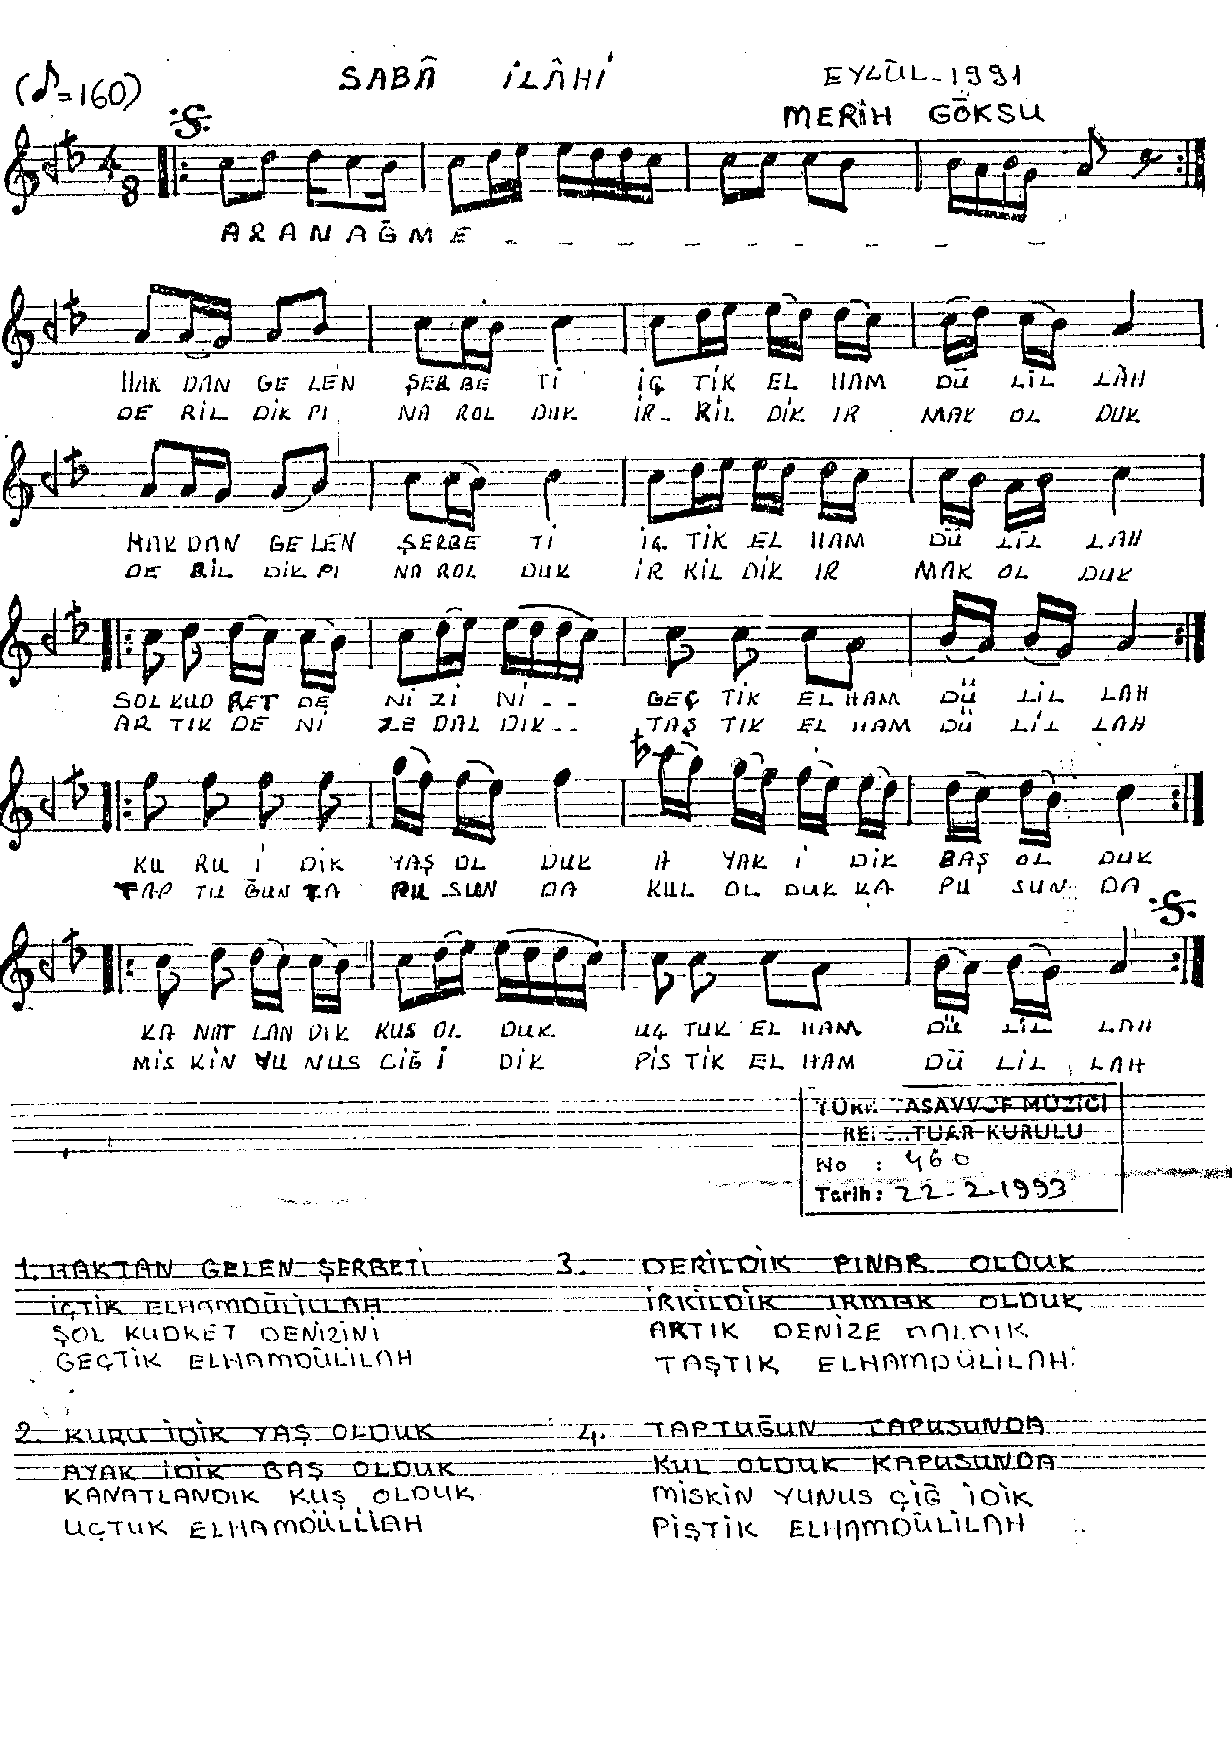 (♪=160) SABÂ İLÂHİ EYLÜL-1991
MERİH GÖKSU
4/8
ARANAĞME - - - - - - - -
HAK DAN GE LEN ŞER BE Tİ İÇ TİK EL HAM DÜ LİL LÂH
DE RİL DİK PI NA ROL DUK İR- KİL DİK IR MAK OL DUK
HAK DAN GE LEN ŞER BE Tİ İÇ TİK EL HAM DÜ LİL LAH
DE RİL DİK PI NA ROL DUK İR KİL DİK IR MAK OL DUK
SOL KUD RET DE Nİ Zİ Nİ - - GEÇ TİK EL HAM DÜ LİL LAH
AR TIK DE Nİ ZE DAL DIK - - TAŞ TIK EL HAM DÜ LİL LAH
KU RU İ DİK YAŞ OL DUK A YAK İ DİK BAŞ OL DUK
TAP TU ĞUN TA PU SUN DA KUL OL DUK KA PU SUN DA
KA NAT LAN DIK KUS OL DUK UÇ TUK EL HAM DÜ LİL LAH
MİS KİN YU NUS ÇİĞ İ DİK PİS TİK EL HAM DÜ LİL LAH
TÜRK TASAVVUF MUZİĞİ
REPERTUAR KURULU
No : 460
Tarih: 22-2-1993
1. HAKTAN GELEN ŞERBETİ
İÇTİK ELHAMDÜLİLLAH
ŞOL KUDRET DENİZİNİ
GEÇTİK ELHAMDÜLİLAH
2. KURU İDİK YAŞ OLDUK
AYAK İDİK BAŞ OLDUK
KANATLANDIK KUŞ OLDUK
UÇTUK ELHAMDÜLİLAH
3. DERİLDİK PINAR OLDUK
İRKİLDİK IRMAK OLDUK
ARTIK DENİZE DALDIK
TAŞTIK ELHAMDÜLİLAH
4. TAPTUĞUN TAPUSUNDA
KUL OLDUK KAPUSUNDA
MİSKİN YUNUS ÇİĞ İDİK
PİŞTİK ELHAMDÜLİLAH